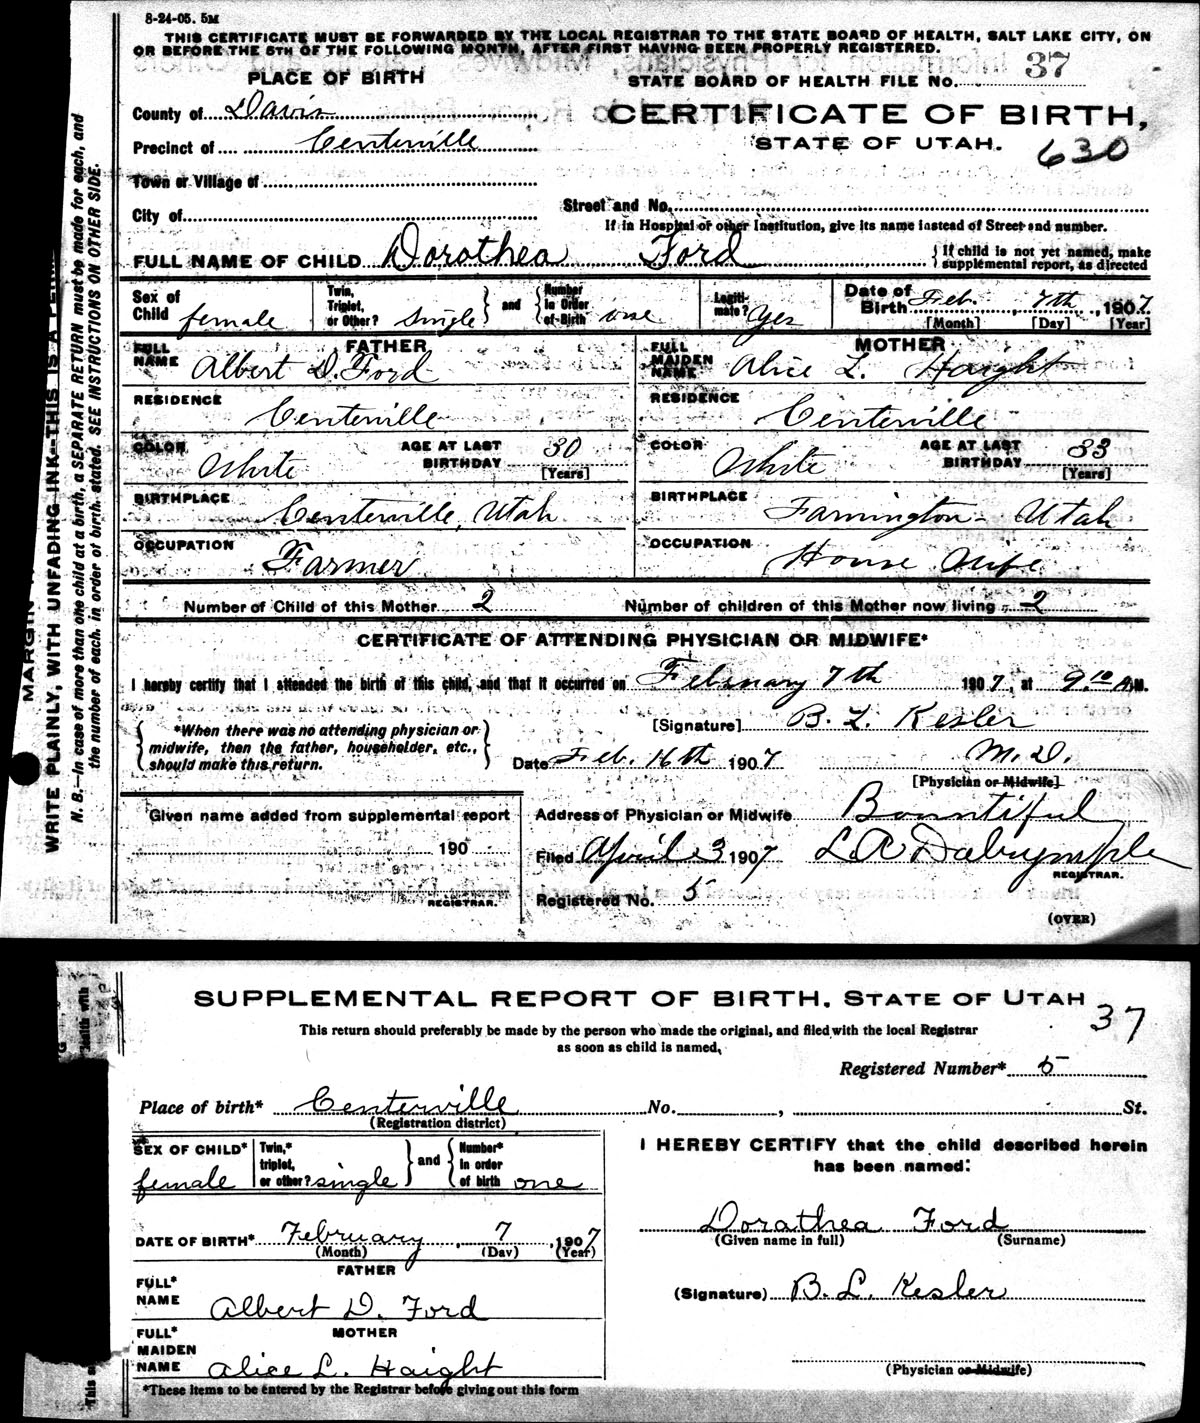 8-24-05. 5M
THIS CERTIFICATE MUST BE FORWARDED BY THE LOCAL REGISTRAR TO THE STATE BOARD OF HEALTH, SALT LAKE CITY, ON
OR BEFORE THE 5TH OF THE FOLLOWING MONTH, AFTER FIRST HAVING BEEN PROPERLY REGISTERED.
PLACE OF BIRTH
STATE BOARD OF HEALTH FILE NO. 37
County of Davis
CERTIFICATE OF BIRTH,
Precinct of Centerville
STATE OF UTAH. 630
Town or Village of
City of
Street and No.
If in Hospital or other Institution, give its name instead of Street and number.
FULL NAME OF CHILD Dorathea Ford
{If child is not yet named, make
supplemental report, as directed
Sex of Child female
Twin, Triplet, or Other? Single } and { Number in Order of Birth one
Legitimate? Yes
Date of Birth Feb. 7th, 1907.
[Month] [Day] [Year]
FATHER
MOTHER
FULL NAME Albert D. Ford
FULL MAIDEN NAME Alice L. Haight
RESIDENCE Centerville
RESIDENCE Centerville
COLOR White AGE AT LAST BIRTHDAY 30 [Years]
COLOR White AGE AT LAST BIRTHDAY 33 [Years]
BIRTHPLACE Centerville, Utah
BIRTHPLACE Farmington - Utah
OCCUPATION Farmer
OCCUPATION House Wife
Number of Child of this Mother 2 Number of children of this Mother now living 2
CERTIFICATE OF ATTENDING PHYSICIAN OR MIDWIFE*
I hereby certify that I attended the birth of this child, and that it occurred on February 7th 1907, at 9.10 A.M.
{*When there was no attending physician or
midwife, then the father, householder, etc.,
should make this return.}
[Signature] B. L. Kesler
Date Feb. 16th 1907 M.D.
[Physician or Midwife]
Given name added from supplemental report
190
REGISTRAR.
Address of Physician or Midwife Bountiful
Filed April 3 1907 L A Dalrymple
REGISTRAR.
Registered No. 5
(OVER)
MARGIN
WRITE PLAINLY, WITH UNFADING INK--THIS IS A
N. B.—In case of more than one child at a birth, a SEPARATE RETURN must be made for each, and
the number of each, in order of birth, stated. SEE INSTRUCTIONS ON OTHER SIDE.
SUPPLEMENTAL REPORT OF BIRTH, STATE OF UTAH
37
This return should preferably be made by the person who made the original, and filed with the local Registrar
as soon as child is named,
Registered Number* 5
Place of birth* Centerville No. , St.
(Registration district)
SEX OF CHILD* female
Twin,* triplet, or other? single } and { Number* in order of birth one
I HEREBY CERTIFY that the child described herein
has been named:
DATE OF BIRTH* February, 7, 1907
(Month) (Day) (Year)
Dorathea Ford
(Given name in full) (Surname)
FATHER
FULL* NAME Albert D. Ford
(Signature) B. L. Kesler
MOTHER
FULL* MAIDEN NAME Alice L. Haight
(Physician or Midwife)
*These items to be entered by the Registrar before giving out this form